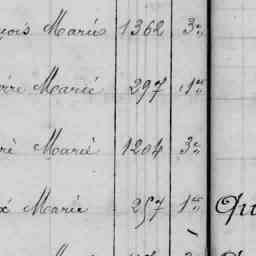 çois Marie 1362 3e
erre Marie 297 1er
rè Marie 1204 3e
x Marie 257 1er Qu